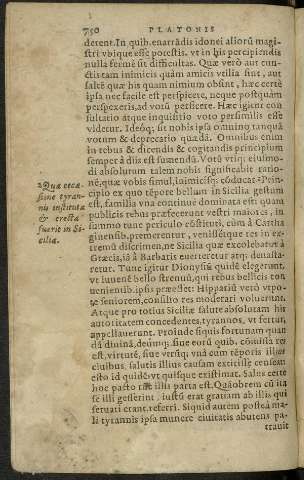 750 PLATONIS
derent. In quib. enarrādis idonei aliorū magi-
stri vbique esse potestis. vt in his percipiendis
nulla fermè sit difficultas. Quæ verò aut cun-
ctis tam inimicis quàm amicis vtilia sint, aut
saltē quæ his quam minimum obsint, hæc certè
ipsa nec facile est perspicere, neque postquàm
perspexeris, ad votū perficere. Hæc igitur con-
sultatio atque inquisitio voto persimilis esse
videtur. Ideóq; sit nobis ipsa omnino tanquā
votum & deprecatio quædā. Omnibus enim
in rebus & dicendi & cogitandi principium
semper à diis est sumendū. Votū vtiq; eiusmo-
di absolutum talem nobis significabit ratio-
nē, quæ vobis simul, inimicísq; cōducat. Prin-
cipio ex quo tēpore bellum in Sicilia gestum
est, familia vna continuè dominata est: quam
publicis rebus præfecerunt vestri maiores, in
summo tunc periculo cōstituti, cùm à Cartha
giniensib. premerentur, venissétque res in ex-
tremū discrimen, ne Sicilia quæ excolebatur à
Græcis, iā à Barbaris euerteretur atq; deuasta-
retur. Tunc igitur Dionysiū quidē elegerunt,
vt iuuenē bello strenuū, qui rebus bellicis con-
uenientib. ipsis præesset: Hipparinū verò vtpo-
te seniorem, consultò res moderari voluerunt.
Atque pro totius Siciliæ salute absolutam his
autoritatem concedentes, tyrannos, vt fertur,
appellauerunt. Proinde siquis fortunam quan
dā diuinā, deúmq; siue eorū quib. cōmissa res
est, virtutē, siue vtrūq; vnà cum tēporis illius
ciuibus, salutis illius causam extitisse censeat:
esto id quidē vt quisque existimat. Salus certè
hoc pacto illis parta est. Quāobrem cū ita
se illi gesserint, iustū erat gratiam ab illis qui
seruati erant, referri. Siquid autem postea ma-
li tyrannis ipsa munere ciuitatis abutens pa-
trauit
Quæ occa-
sione tyran-
nis instituta
& erecta
fuerit in Si-
cilia.